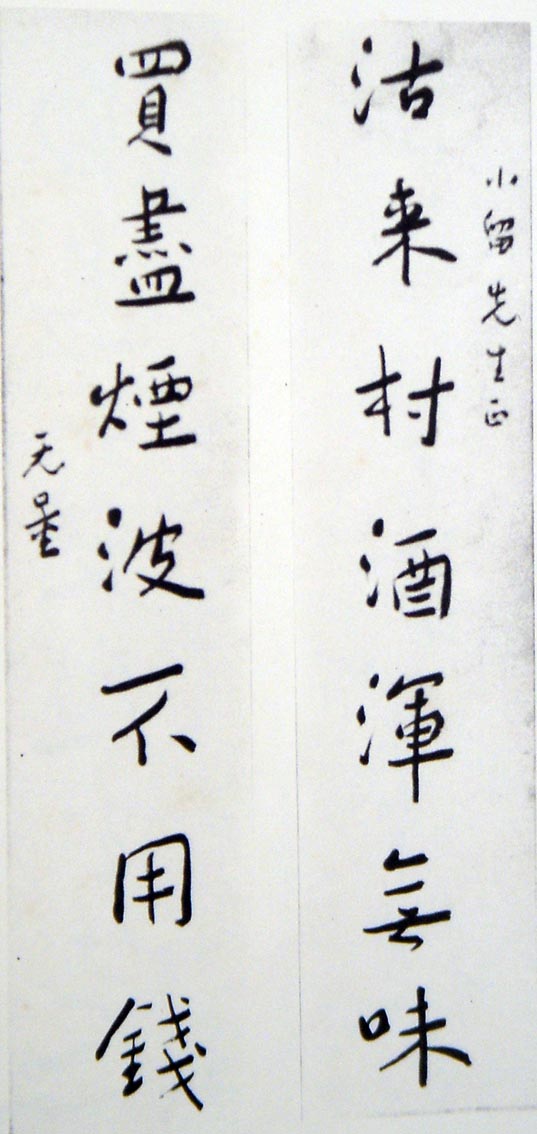 小留先生正
沽来村酒渾無味
買盡煙波不用錢
无量